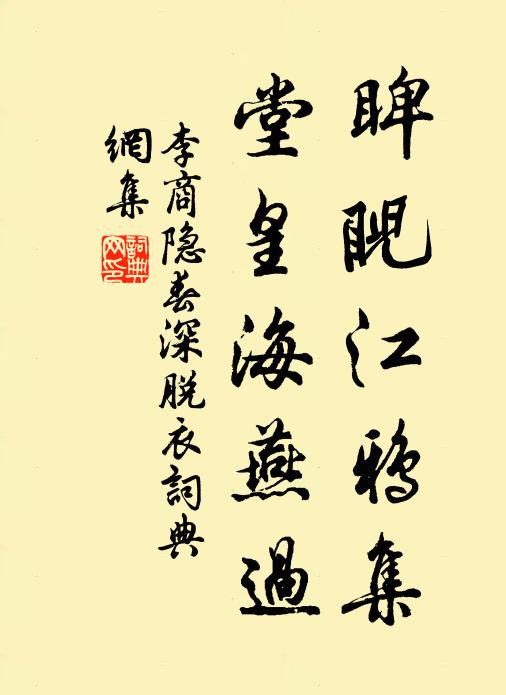 睥睨江鴉集
堂皇海燕過
李商隐春深脱衣詞典
網集
詞典網印